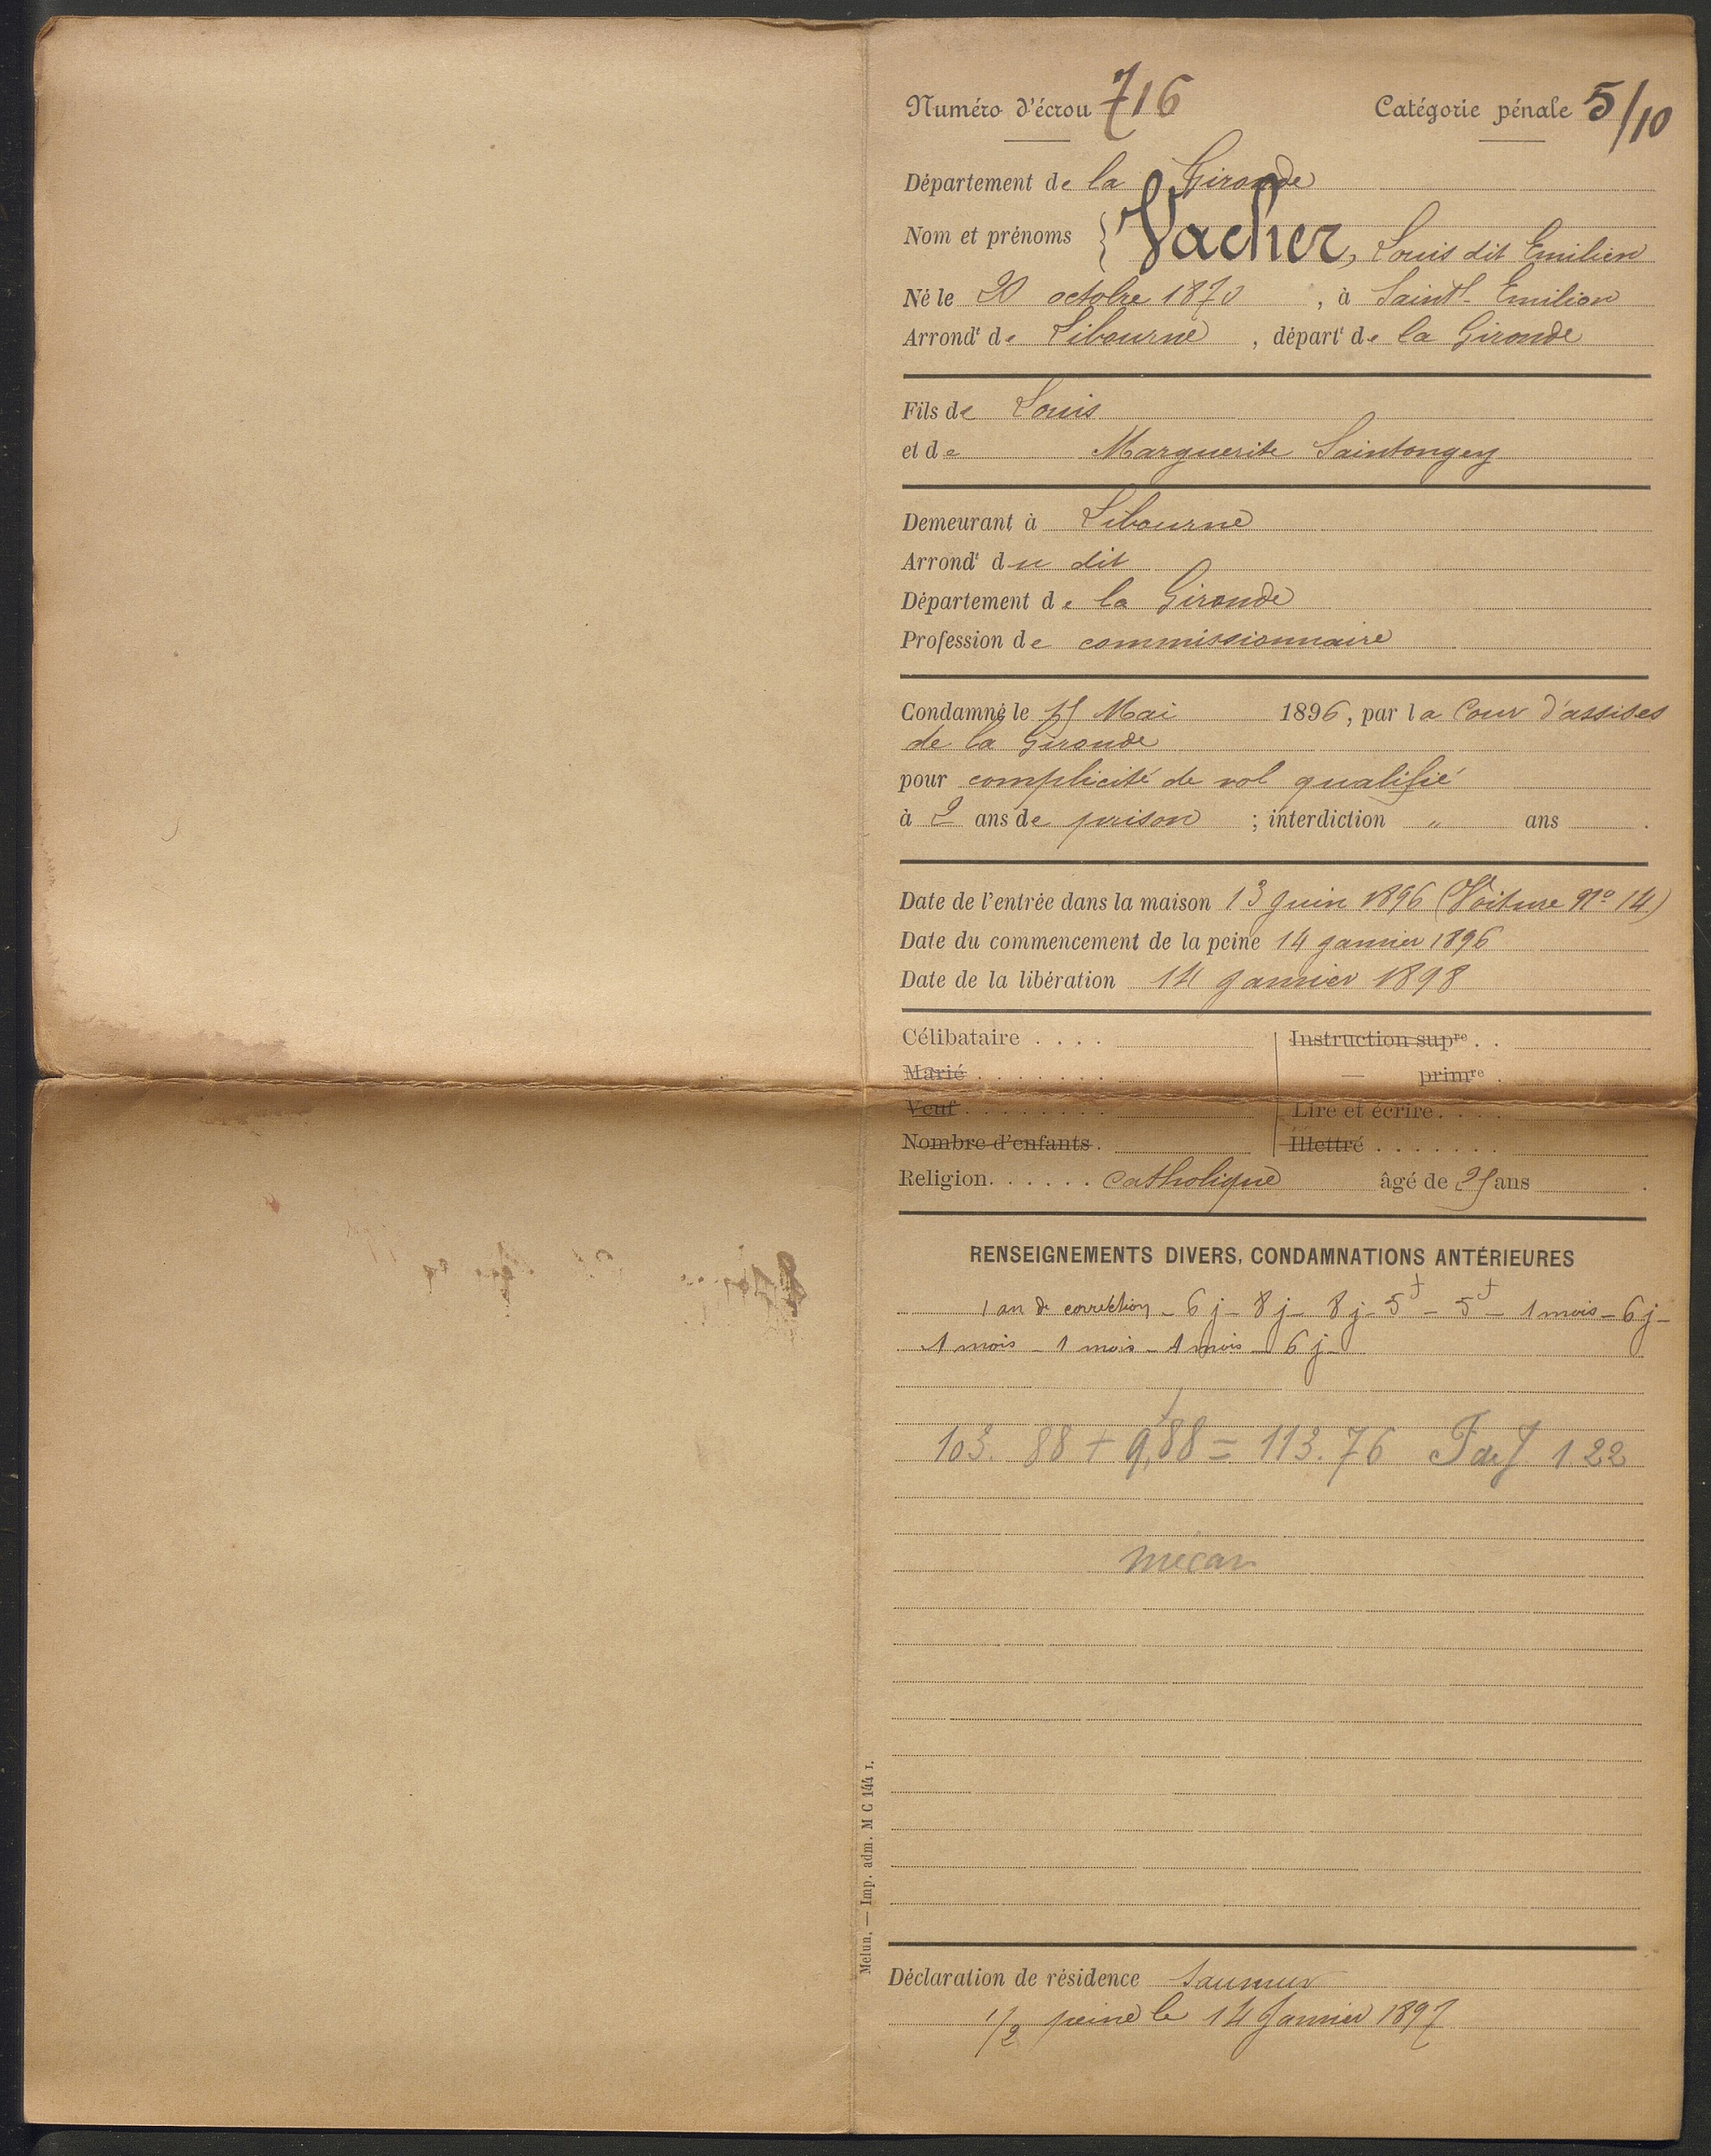 Numéro d'écrou 716 Catégorie pénale 5/10
Département de la Gironde
Nom et prénoms { Vacher, Louis dit Emilien
Né le 20 octobre 1870, à Saint-Emilion
Arrondt de Libourne, départt de la Gironde
Fils de Louis
et de Marguerite Saintongey
Demeurant à Libourne
Arrondt du dit
Département de la Gironde
Profession de commissionnaire
Condamné le Mai 1896, par la Cour d'assises
de la Gironde
pour complicité de vol qualifié
à 2 ans de prison ; interdiction " ans .
Date de l'entrée dans la maison 13 juin 1896 (Voiture No 14)
Date du commencement de la peine 14 janvier 1896
Date de la libération 14 janvier 1898
Célibataire . . . . Instruction supre . .
Marié . . . . . . . — primre .
Veuf . . . . . . . . Lire et écrire . . . .
Nombre d'enfants . Illettré . . . . . . .
Religion . . . . . . catholique âgé de 25 ans .
RENSEIGNEMENTS DIVERS, CONDAMNATIONS ANTÉRIEURES
1 an de correction - 6 j - 8 j - 8 j - 5 f - 5 f - 1 mois - 6 j -
1 mois - 1 mois - 1 mois - 6 j -
103.88 + 9,88 = 113.76 1.22
mécan
Déclaration de résidence Saumur
1/2 peine le 14 Janvier 1897
Melun. — Imp. adm. M C 144 I.